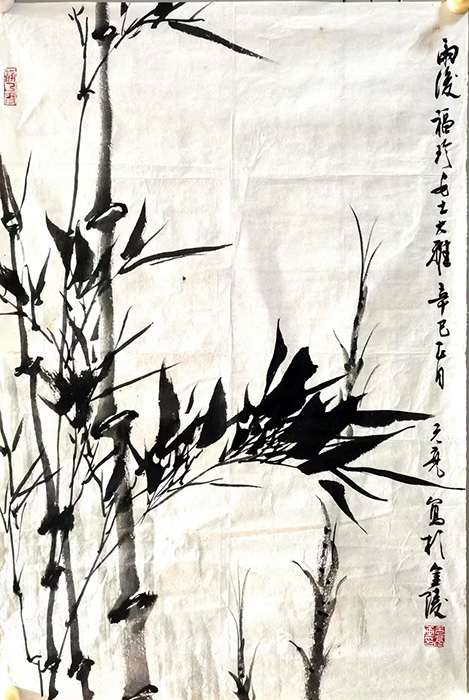 雨後 福珍女士大雅 辛巳正月 天亮 寫於金陵